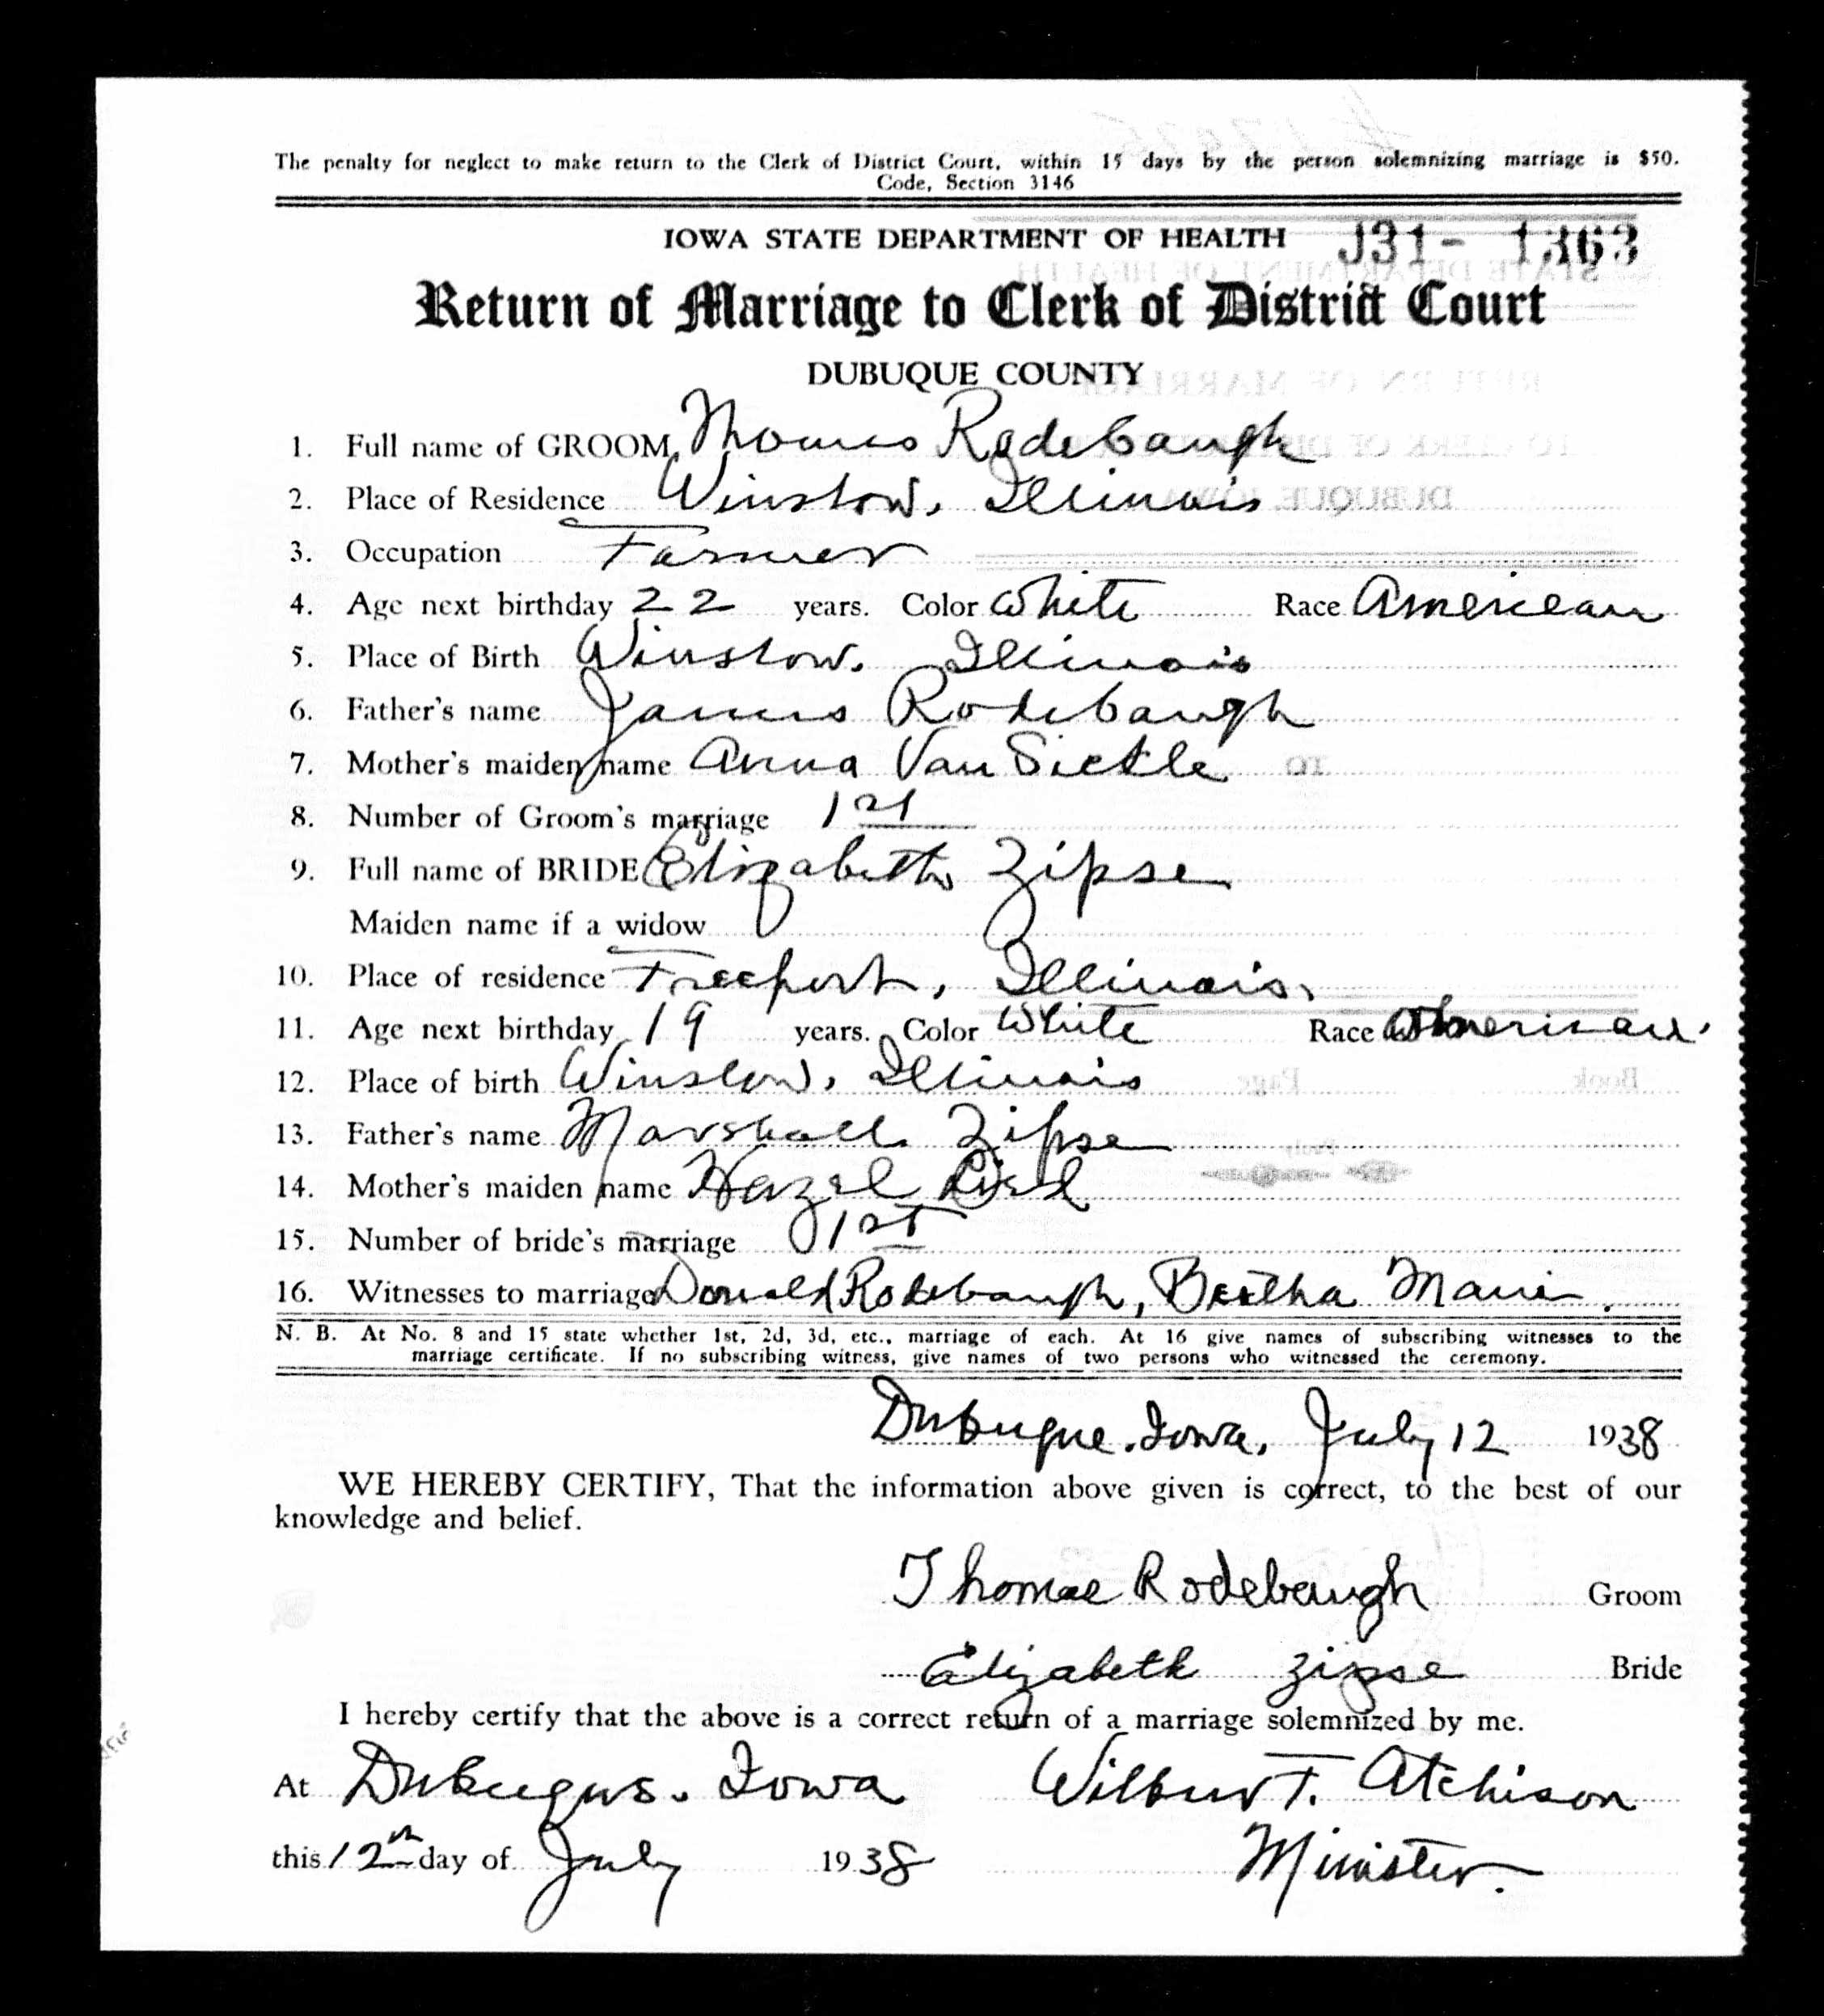 The penalty for neglect to make return to the Clerk of District Court, within 15 days by the person solemnizing marriage is $50.
Code, Section 3146
IOWA STATE DEPARTMENT OF HEALTH J31- 1363
Return of Marriage to Clerk of District Court
DUBUQUE COUNTY
1. Full name of GROOM Thomas Rodebaugh
2. Place of Residence Winslow, Illinois
3. Occupation Farmer
4. Age next birthday 22 years. Color White Race American
5. Place of Birth Winslow, Illinois
6. Father's name James Rodebaugh
7. Mother's maiden name Anna Van Sickle
8. Number of Groom's marriage 1st
9. Full name of BRIDE Elizabeth Zipse
Maiden name if a widow
10. Place of residence Freeport, Illinois.
11. Age next birthday 19 years. Color White Race American
12. Place of birth Winslow, Illinois
13. Father's name Marshall Zipse
14. Mother's maiden name Hazel
15. Number of bride's marriage 1st
16. Witnesses to marriage Donald Rodebaugh, Bertha
N. B. At No. 8 and 15 state whether 1st, 2d, 3d, etc., marriage of each. At 16 give names of subscribing witnesses to the
marriage certificate. If no subscribing witness, give names of two persons who witnessed the ceremony.
Dubuque, Iowa, July 12 1938
WE HEREBY CERTIFY, That the information above given is correct, to the best of our
knowledge and belief.
Thomas Rodebaugh Groom
Elizabeth Zipse Bride
I hereby certify that the above is a correct return of a marriage solemnized by me.
At Dubuque. Iowa Wilbur T. Atchison
this 12th day of July 1938 Minister.